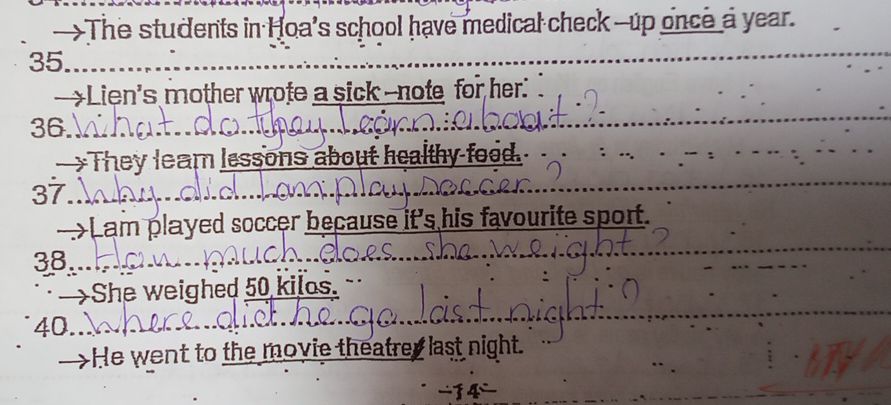 →The students in Hoa's school have medical check–up once a year.
35.
→Lien's mother wrote a sick–note for her.
36. What do they learn about?
→They learn lessons about healthy food.
37. Why did Lam play soccer?
→Lam played soccer because it's his favourite sport.
38. How much does she weight?
→She weighed 50 kilos.
40. Where did he go last night?
→He went to the movie theatre last night.
–14–